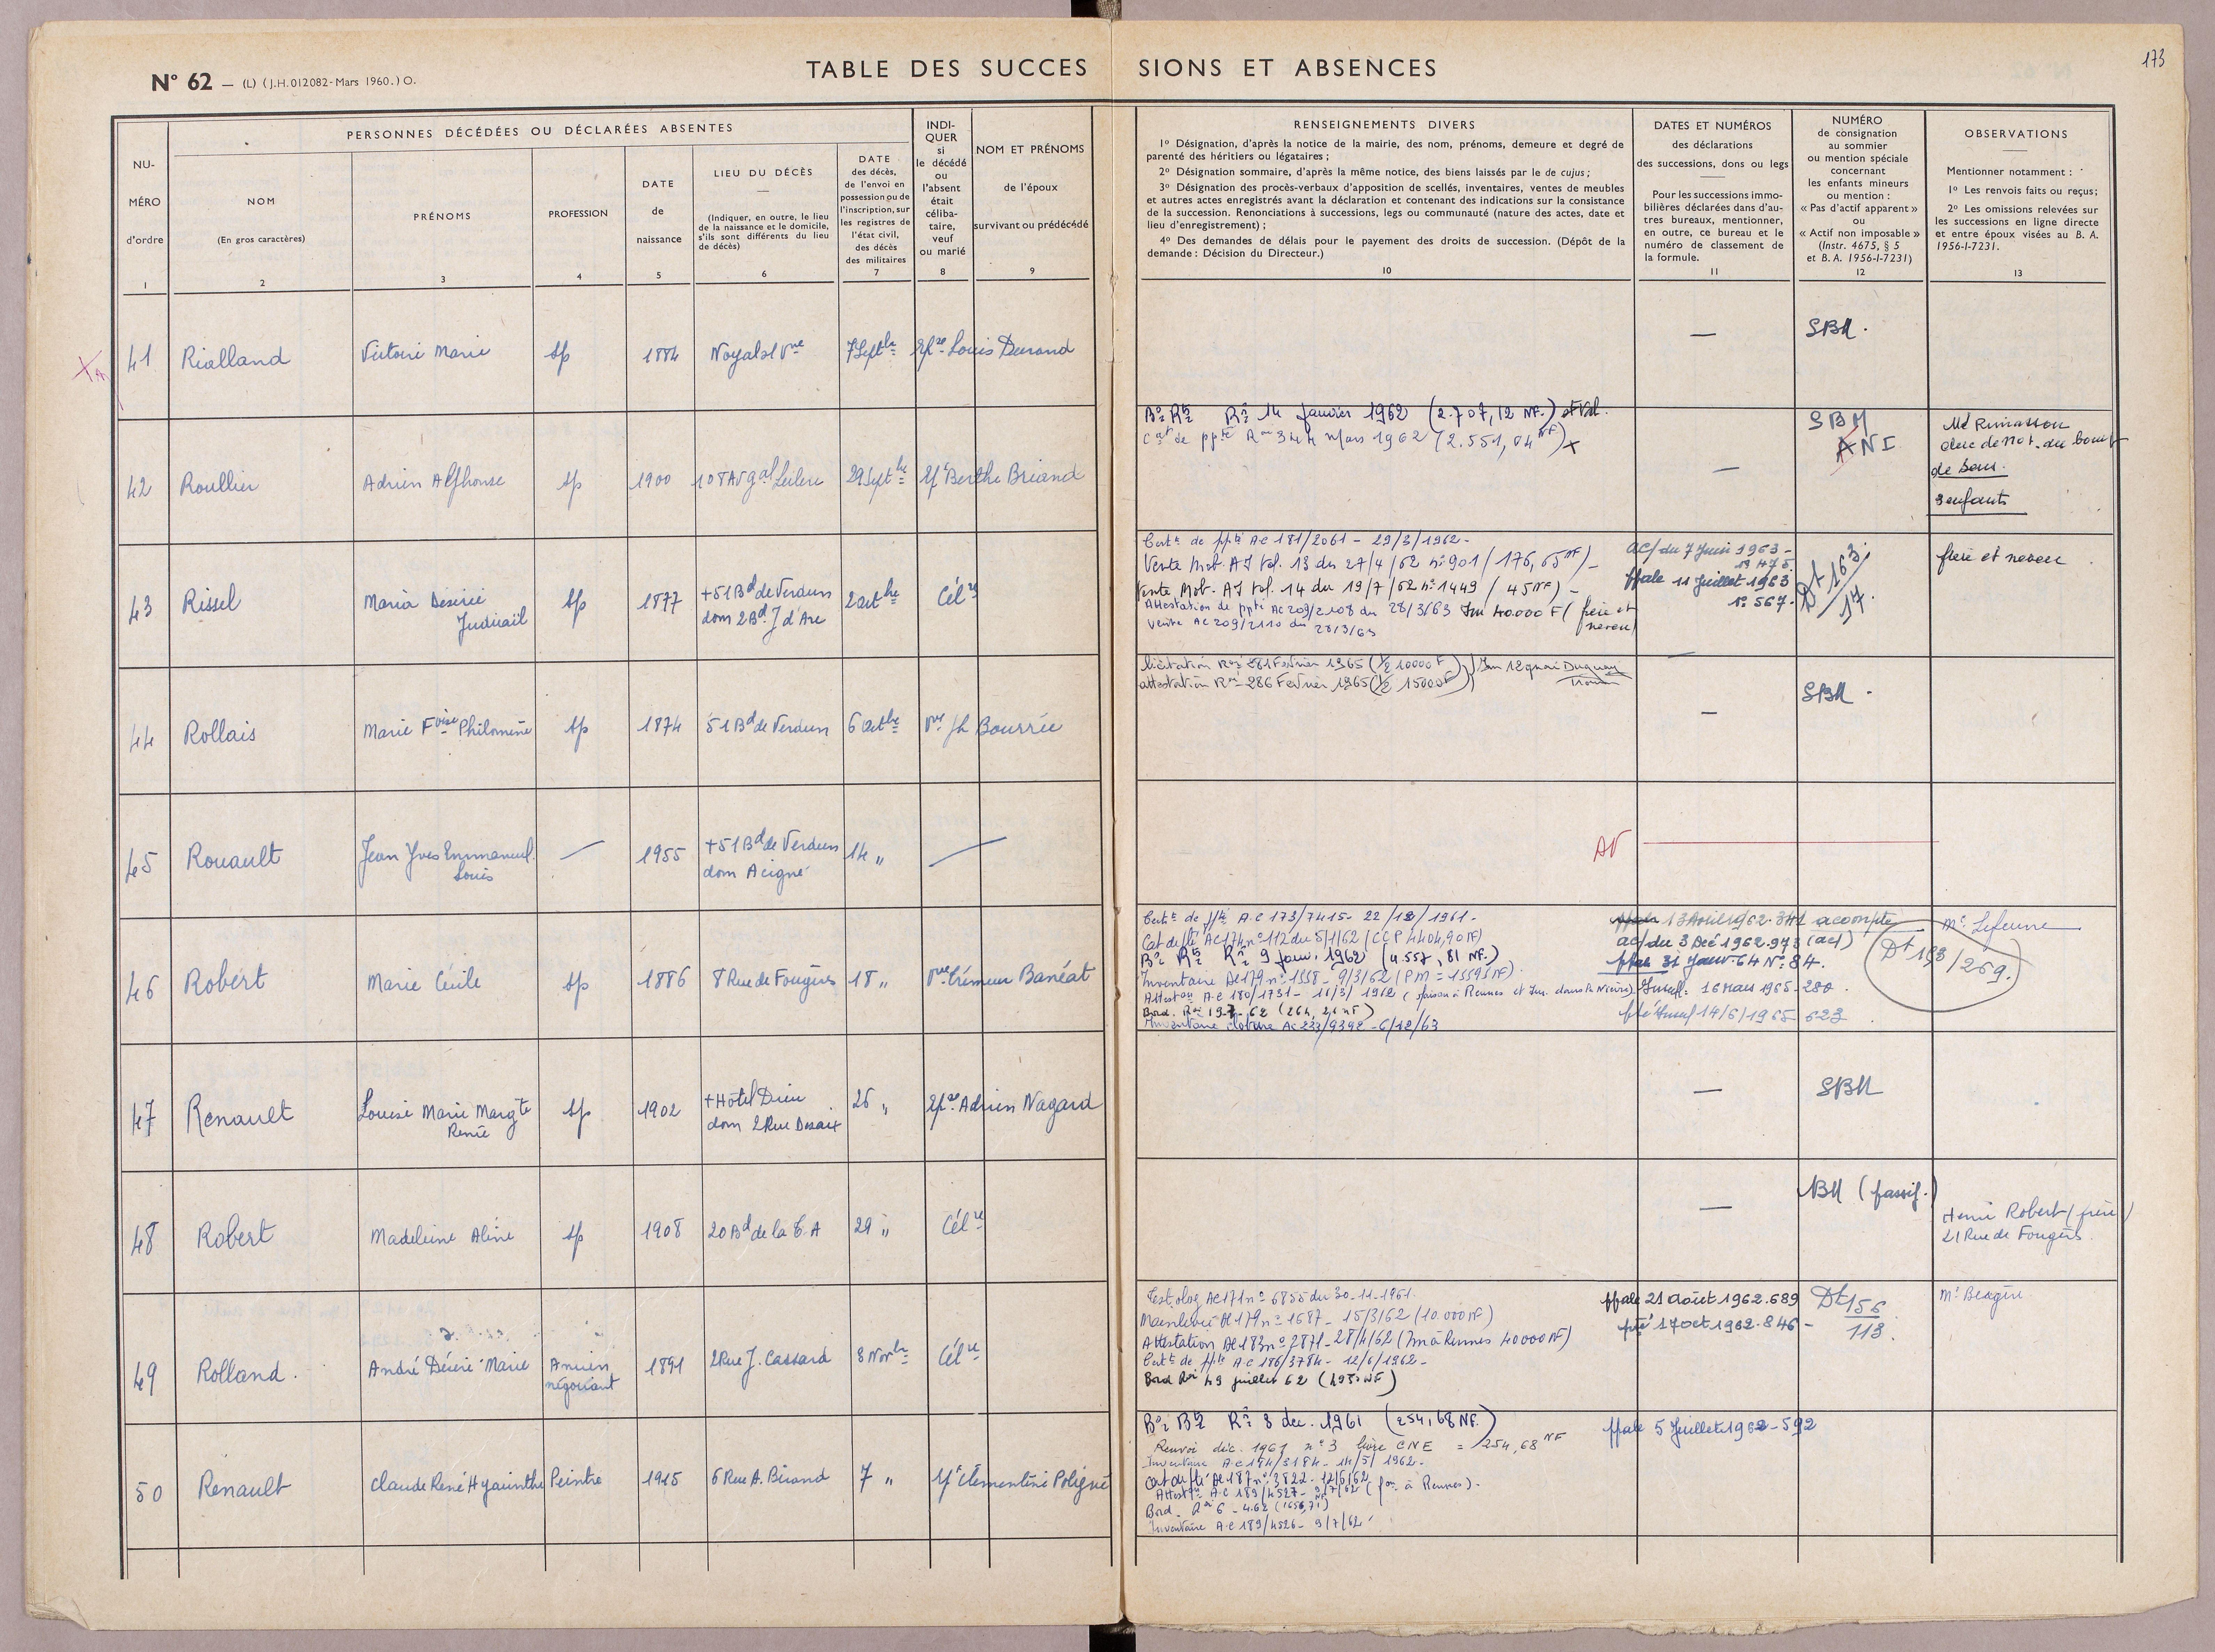 173
N° 62 — (L) (J.H. 012082-Mars 1960.) O.
TABLE DES SUCCESSIONS ET ABSENCES
NUMÉRO d'ordre
1
PERSONNES DÉCÉDÉES OU DÉCLARÉES ABSENTES
NOM
(En gros caractères)
2
PRÉNOMS
3
PROFESSION
4
DATE
de
naissance
5
LIEU DU DÉCÈS
—
(Indiquer, en outre, le lieu
de la naissance et le domicile,
s'ils sont différents du lieu
de décès)
6
DATE
des décès,
de l'envoi en
possession ou de
l'inscription, sur
les registres de
l'état civil,
des décès
des militaires
7
INDI-
QUER
si
le décédé
ou
l'absent
était
céliba-
taire,
veuf
ou marié
8
NOM ET PRÉNOMS
de l'époux
survivant ou prédécédé
9
RENSEIGNEMENTS DIVERS
1° Désignation, d'après la notice de la mairie, des nom, prénoms, demeure et degré de
parenté des héritiers ou légataires ;
2° Désignation sommaire, d'après la même notice, des biens laissés par le de cujus ;
3° Désignation des procès-verbaux d'apposition de scellés, inventaires, ventes de meubles
et autres actes enregistrés avant la déclaration et contenant des indications sur la consistance
de la succession. Renonciations à successions, legs ou communauté (nature des actes, date et
lieu d'enregistrement) ;
4° Des demandes de délais pour le payement des droits de succession. (Dépôt de la
demande : Décision du Directeur.)
10
DATES ET NUMÉROS
des déclarations
des successions, dons ou legs
Pour les successions immo-
bilières déclarées dans d'au-
tres bureaux, mentionner,
en outre, ce bureau et le
numéro de classement de
la formule.
11
NUMÉRO
de consignation
au sommier
ou mention spéciale
concernant
les enfants mineurs
ou mention :
« Pas d'actif apparent »
ou
« Actif non imposable »
(Instr. 4675, § 5
et B. A. 1956-I-7231)
12
OBSERVATIONS
Mentionner notamment :
1° Les renvois faits ou reçus;
2° Les omissions relevées sur
les successions en ligne directe
et entre époux visées au B. A.
1956-I-7231.
13
41 Rialland Victoire Marie sp 1884 Noyal s/ Vne 7 Septbre Epse Louis Durand — SBM.
Bau Rnes Rau 14 Janvier 1962 (2.707,12 NF.)
Cat de ppté Rau 344 Mars 1962 (2.551,04 NF) x
42 Roullier Adrien Alphonse sp 1900 108 Av Gal Leclerc 29 Septbre Ep Berthe Briand — SBM
ANI
Me Rimasson
de Sau.
3 enfants
43 Rissel Maria Desirée
Judicaël
sp 1877 +51 Bd de Verdun
dom 2 Bd J d'Arc
2 octbre Célre
Certt de ppté AC 181/2061 - 29/3/1962 -
Vente Mob. AJ vol. 13 du 27/4/62 n° 901 / 176,65 NF) -
Vente Mob. AJ vol. 14 du 19/7/62 n° 1449 / 45 NF) -
Attestation de ppté AC 209/2108 du 28/3/63 Im 40.000 F (frère et
neveu)
Vente AC 209/2110 du 28/3/63
AC/ du 7 Juin 1963 -
ppale 11 Juillet 1963
N° 567.
Dt 163
17.
frère et neveu
licitation Rau 281 Février 1965 (1/2 10000 F) Im 12 quai Duguay
Trouin
attestation Rau 286 Février 1965 (1/2 15000 F)
44 Rollais Marie Foise Philomène sp 1874 51 Bd de Verdun 6 octbre Vve Jh Bourrée — SBM.
45 Rouault Jean Yves Emmanuel
Louis
— 1955 +51 Bd de Verdun
dom Acigné
14 " — AV
46 Robert Marie Cécile sp 1886 8 Rue de Fougères 18 " Vve Banéat
Certt de ppté A.C 173/7415 - 22/12/1961 -
Cat de pté AC 174 n° 112 du 5/1/62 (CCP 4404,90 NF)
Bau Rnes Rau 9 Janv. 1962 (4.557,81 NF.)
Inventaire AC 179 n° 1558 - 9/3/62
Attestion A.C 180/1731 - 16/3/1962 (maison à Rennes et Im. dans la Nièvre)
Bord. Rau 197 - 62 (264,26 NF)
Inventaire cloture AC 233/9392 - 6/12/63
13 Avril 1962. 341 acompte
ac/ du 3 Déc 1962. 973 (act)
ppale 31 Janv. 64 N° 84.
16 Mars 1965 - 280.
14/6/1965 - 623
Dt 193/269.
Me Lefeuvre
47 Renault Louise Marie Margte
Renée
sp 1902 +Hôtel Dieu
dom 2 Rue Desaix
26 " Epse Adrien Nagard — SBM
48 Robert Madeleine Aline sp 1908 20 Bd de la T. A 29 " Célre — BM (passif.)
Henri Robert (frère)
21 Rue de Fougères
49 Rolland. André Désiré Marie Ancien
négociant
1891 2 Rue J. Cassard 8 Novbre Célre
Test. olog AC 171 n° 6855 du 30-11-1961.
Mainlevée AC 179 n° 1687 - 15/3/62 (10.000 NF)
Attestation AC 183 n° 2871 - 28/4/62 (Im à Rennes 40000 NF)
Certt de ppté A.C 186/3784 - 12/6/1962 -
Bord Rau 49 juillet 62 (1930 NF)
ppale 21 août 1962. 689
pté 17 oct 1962. 846 -
Dt 156
113.
50 Renault Claude René Hyacinthe Peintre 1915 6 Rue A. Briand 7 " Ep Clémentine Poligné
Bau Rnes Rau 3 déc. 1961 (254,68 NF.)
Renvoi déc. 1961 n° 3 livre CNE = 254,68 NF
Inventaire A.C 184/3184 - 14/5/1962.
Cat de pté AC 187 n° 3822 - 12/6/62
Attestion A.C 189/4527 - 9/7/62 (fon à Rennes).
Bord Rau 6 - 4.62 (1656,71)
Inventaire A.C 189/4526 - 9/7/62
ppale 5 Juillet 1962 - 592